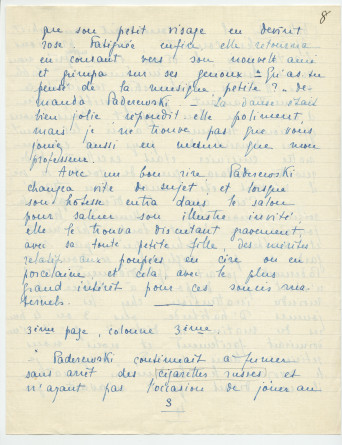 8
que son petit visage en devint
rose. Fatiguée enfin elle retourna
en courant vers son nouvel ami
et grimpa sur ses genoux - Qu'as tu
pensé de la musique petite? - de-
manda Paderewski - la danse était
bien jolie répondit elle poliment,
mais je ne trouve pas que vous
jouiez aussi en mesure que mon
professeur.
- Avec un bon rire Paderewski
changea vite de sujet et lorsque
son hôtesse entra dans le salon
pour saluer son illustre invité
elle le trouva discutant gravement,
avec sa toute petite fille, des mérites
relatifs aux poupées en cire ou en
porcelaine et cela avec le plus
grand intérêt pour ces soucis ma-
ternels.
3ième page, colonne 3ième.
Paderewski continuait à fumer
sans arrêt des (cigarettes russes) et
n'ayant pas l'occasion de jouer au
3